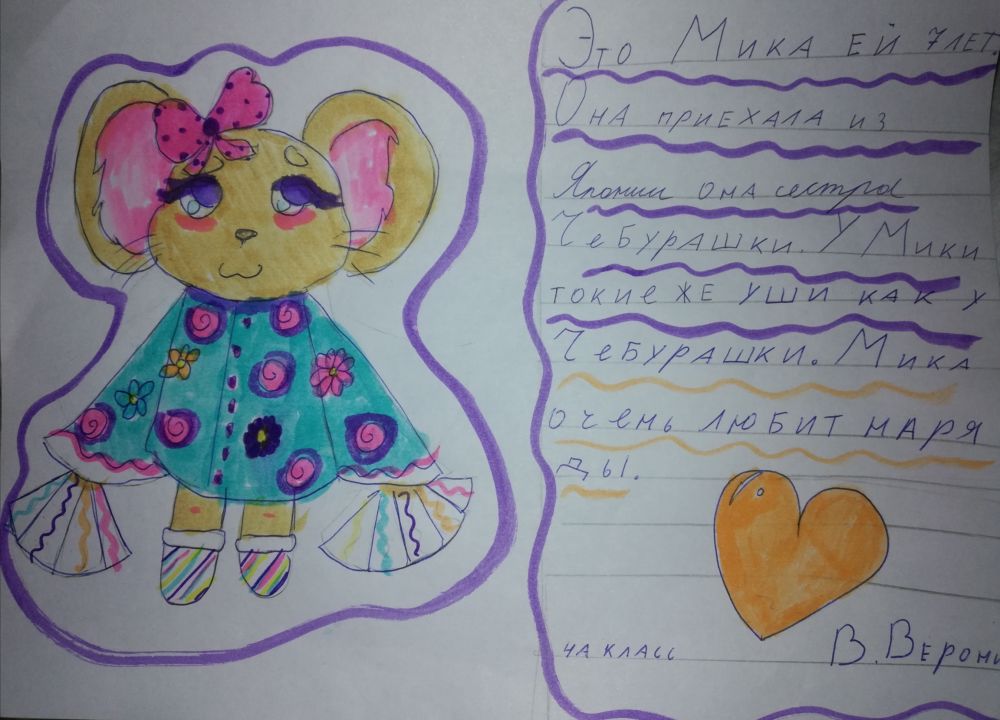 Это Мика ей 7 лет.
Она приехала из
Японии она сестра
Чебурашки. У Мики
токие же уши как у
Чебурашки. Мика
очень любит наря
ды.
4А класс
В.